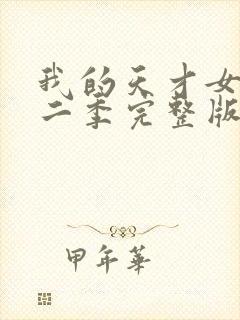 我的天才女
二季完整版
甲年華